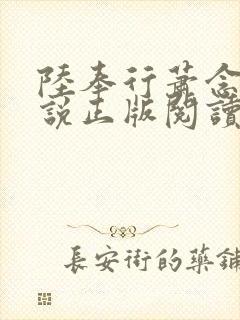 陸奉行蕭念
說正版閱讀
長安街的藥鋪